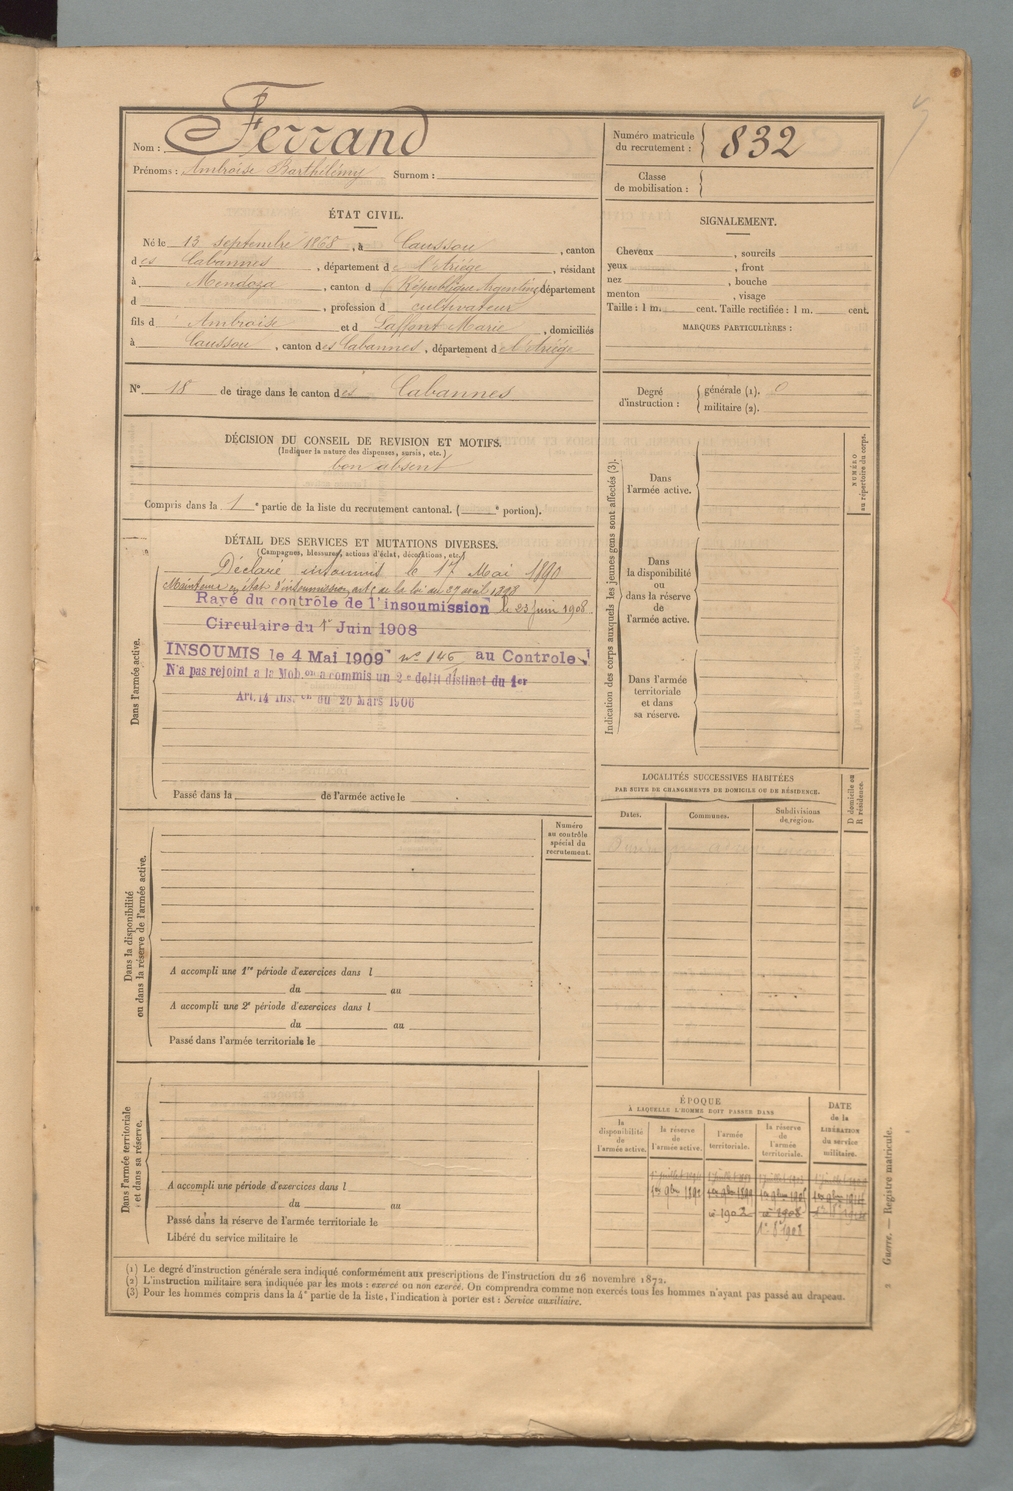 Nom : Ferrand
Prénoms : Ambroise Barthélémy Surnom :
Numéro matricule du recrutement : 832
Classe de mobilisation :
ÉTAT CIVIL.
Né le 13 septembre 1868, à Caussou, canton
des Cabannes, département de l'Ariège, résidant
à Mendoza, canton d République Argentine, département
d , profession d cultivateur
fils d' Ambroise et d Laffont Marie, domiciliés
à Caussou, canton des Cabannes, département de l'Ariège
N° 18 de tirage dans le canton des Cabannes
SIGNALEMENT.
Cheveux , sourcils
yeux , front
nez , bouche
menton , visage
Taille : 1 m. cent. Taille rectifiée : 1 m. cent.
MARQUES PARTICULIÈRES :
Degré d'instruction : générale (1). 0
militaire (2).
DÉCISION DU CONSEIL DE REVISION ET MOTIFS.
(Indiquer la nature des dispenses, sursis, etc.)
bon absent
Compris dans la 1e partie de la liste du recrutement cantonal. ( e portion).
DÉTAIL DES SERVICES ET MUTATIONS DIVERSES.
(Campagnes, blessures, actions d'éclat, décorations, etc.)
Dans l'armée active.
Déclaré insoumis le 17 Mai 1890
Maintenu en état d'insoumission, art de la loi du 27 avril 1898
Rayé du contrôle de l'insoumission le 23 juin 1908
Circulaire du 1er Juin 1908
INSOUMIS le 4 Mai 1909 n° 146 au Controle
N'a pas rejoint a la Mobon a commis un 2e délit distinct du 1er
Art. 14 Ins.on du 20 Mars 1906
Passé dans la de l'armée active le
Indication des corps auxquels les jeunes gens sont affectés (3).
Dans l'armée active.
Dans la disponibilité ou dans la réserve de l'armée active.
Dans l'armée territoriale et dans sa réserve.
NUMÉRO au répertoire du corps.
LOCALITÉS SUCCESSIVES HABITÉES
PAR SUITE DE CHANGEMENTS DE DOMICILE OU DE RÉSIDENCE.
Dates. Communes. Subdivisions de région.
D domicile ou R résidence.
Dans la disponibilité ou dans la réserve de l'armée active.
Numéro au contrôle spécial du recrutement.
A accompli une 1re période d'exercices dans l
du au
A accompli une 2e période d'exercices dans l
du au
Passé dans l'armée territoriale le
Dans l'armée territoriale et dans sa réserve.
A accompli une période d'exercices dans l
du au
Passé dans la réserve de l'armée territoriale le
Libéré du service militaire le
ÉPOQUE
À LAQUELLE L'HOMME DOIT PASSER DANS
la disponibilité de l'armée active.
la réserve de l'armée active.
l'armée territoriale.
la réserve de l'armée territoriale.
DATE de la LIBÉRATION du service militaire.
1er 9bre 1892 1er 9bre
1902 1908
1908
(1) Le degré d'instruction générale sera indiqué conformément aux prescriptions de l'instruction du 26 novembre 1872.
(2) L'instruction militaire sera indiquée par les mots : exercé ou non exercé. On comprendra comme non exercés tous les hommes n'ayant pas passé au drapeau.
(3) Pour les hommes compris dans la 4e partie de la liste, l'indication à porter est : Service auxiliaire.
2 Guerre. — Registre matricule.